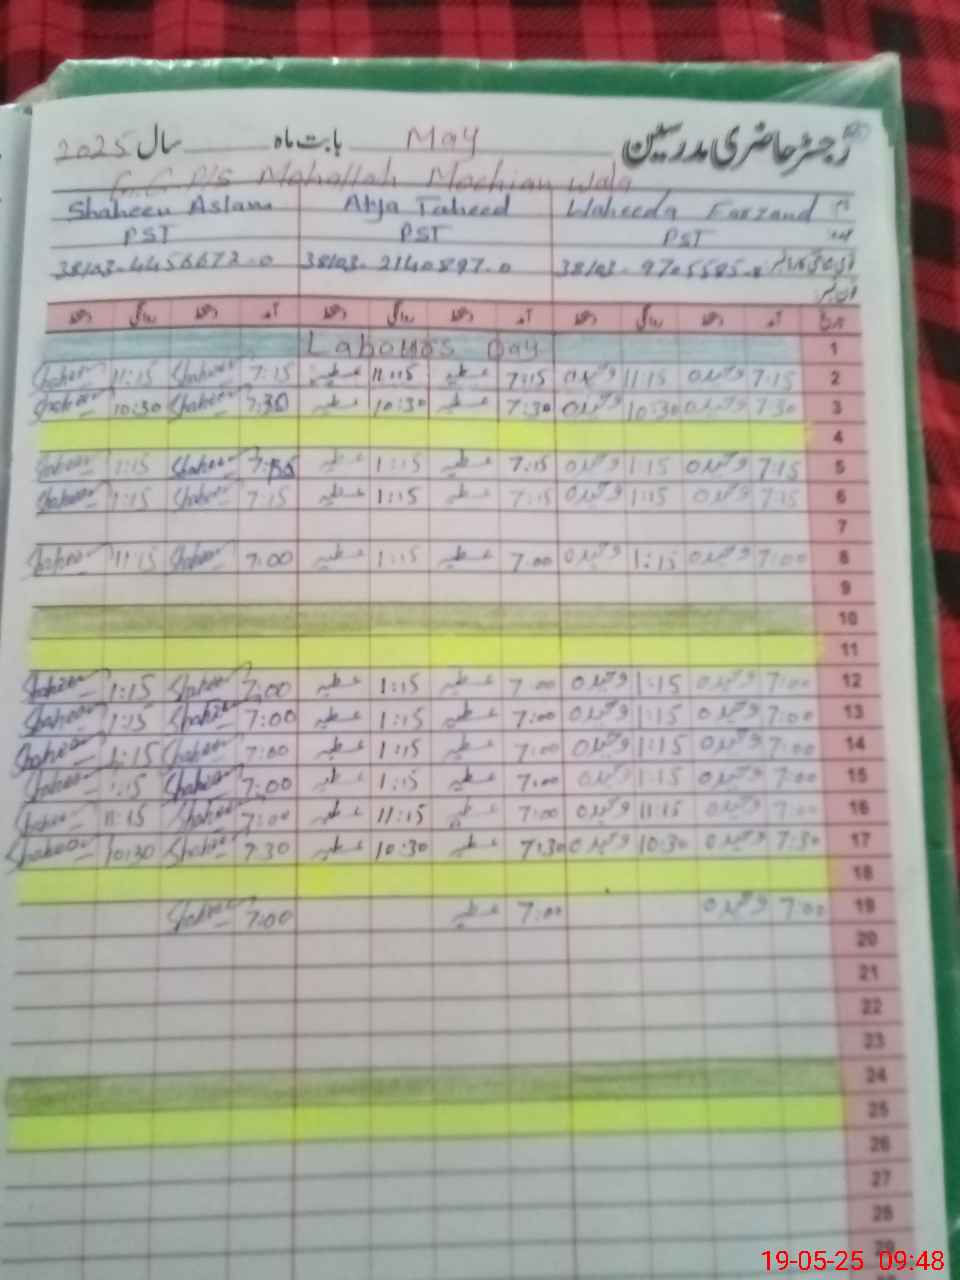 رجسٹر حاضری مدرسین بابت ماہ May سال 2025
G.G.P/S Mahallah Machian Wala
Shaheen Aslam Atya Waheeda Farzand
PST PST PST
38103- 38103- 38103-
Labours Day 1
Shaheen 11:15 Shaheen 7:15 عطیہ 11:15 عطیہ 7:15 وحیدہ 11:15 وحیدہ 7:15 2
Shaheen 10:30 Shaheen 7:30 عطیہ 10:30 عطیہ 7:30 وحیدہ 10:30 وحیدہ 7:30 3
4
Shaheen 1:15 Shaheen عطیہ 1:15 عطیہ 7:15 وحیدہ 1:15 وحیدہ 7:15 5
Shaheen 1:15 Shaheen 7:15 عطیہ 1:15 عطیہ 7:15 وحیدہ 1:15 وحیدہ 7:15 6
7
Shaheen Shaheen 7:00 عطیہ 1:15 عطیہ 7:00 وحیدہ 1:15 وحیدہ 7:00 8
9
10
11
Shaheen 1:15 Shaheen 7:00 عطیہ 1:15 عطیہ 7:00 وحیدہ 1:15 وحیدہ 7:00 12
Shaheen 1:15 Shaheen 7:00 عطیہ 1:15 عطیہ 7:00 وحیدہ 1:15 وحیدہ 7:00 13
Shaheen 1:15 Shaheen 7:00 عطیہ 1:15 عطیہ 7:00 وحیدہ 1:15 وحیدہ 7:00 14
Shaheen 1:15 Shaheen 7:00 عطیہ 1:15 عطیہ 7:00 وحیدہ 1:15 وحیدہ 7:00 15
Shaheen 11:15 Shaheen 7:00 عطیہ 11:15 عطیہ 7:00 وحیدہ 11:15 وحیدہ 7:00 16
Shaheen 10:30 Shaheen 7:30 عطیہ 10:30 عطیہ 7:30 وحیدہ 10:30 وحیدہ 7:30 17
18
Shaheen 7:00 عطیہ 7:00 وحیدہ 7:00 19
20
21
22
23
24
25
26
27
28
29
19-05-25 09:48